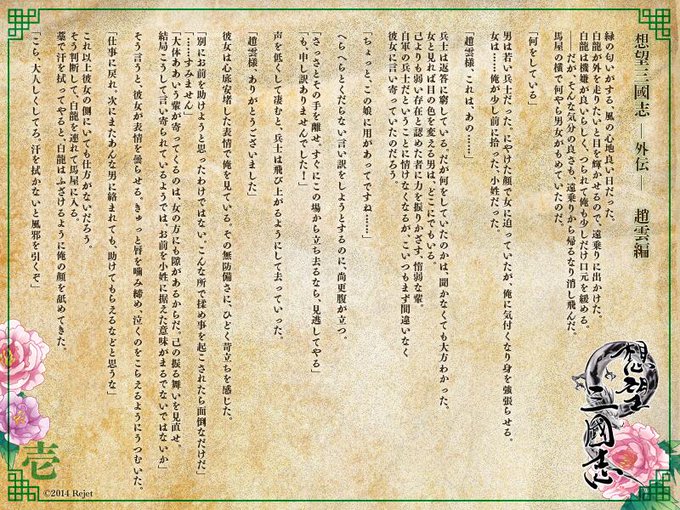 想望三國志 ―外伝― 趙雲編
緑の匂いがする、風の心地良い日だった。
白龍が外を走りたいと目を輝かせるので、遠乗りに出かけた。
白龍は機嫌が良いらしく、つられて俺も少しだけ口元を緩める。
――だが、そんな気分の良さも、遠乗りから帰るなり消し飛んだ。
馬屋の横で、何やら男女がもめていたのだ。
「何をしている」
男は若い兵士だった。にやけた顔で女に迫っていたが、俺に気付くなり身を強張らせる。
女は……俺が少し前に拾った、小姓だった。
「趙雲様、これは、あの……」
兵士は返答に窮している。だが何をしていたのかは、聞かなくても大方わかった。
女と見れば目の色を変える男は、どこにでもいる。
己よりも弱い存在と認めた者に力を振りかざす、惰弱な輩。
自軍の兵士だということに情けなくなるが、こいつもまず間違いなく
彼女に言い寄っていたのだろう。
「ちょっと、この娘に用があってですね……」
へらへらとくだらない言い訳をしようとするのに、尚更腹が立つ。
「さっさとその手を離せ。すぐにこの場から立ち去るなら、見逃してやる」
「も、申し訳ありませんでした！」
声を低くして凄むと、兵士は飛び上がるようにして去っていった。
「趙雲様、ありがとうございました」
彼女は心底安堵した表情で俺を見ている。その無防備さに、ひどく苛立ちを感じた。
「別にお前を助けようと思ったわけではない。こんな所で揉め事を起こされたら面倒なだけだ」
「……すみません」
「大体ああいう輩が寄ってくるのは、女の方にも隙があるからだ。己の振る舞いを見直せ。
結局こうして言い寄られているようでは、お前を小姓に据えた意味がまるでないではないか」
そう言うと、彼女が表情を曇らせる。きゅっと唇を噛み締め、泣くのをこらえるようにうつむいた。
「仕事に戻れ。次にまたあんな男に絡まれても、助けてもらえるなどと思うな」
これ以上彼女の側にいても仕方がないだろう。
そう判断して、白龍を連れて馬屋に入る。
藁で汗を拭ってやると、白龍はふざけるように俺の顔を舐めてきた。
「こら、大人しくしてろ。汗を拭かないと風邪を引くぞ」
想望三國志
壱
©2014 Rejet